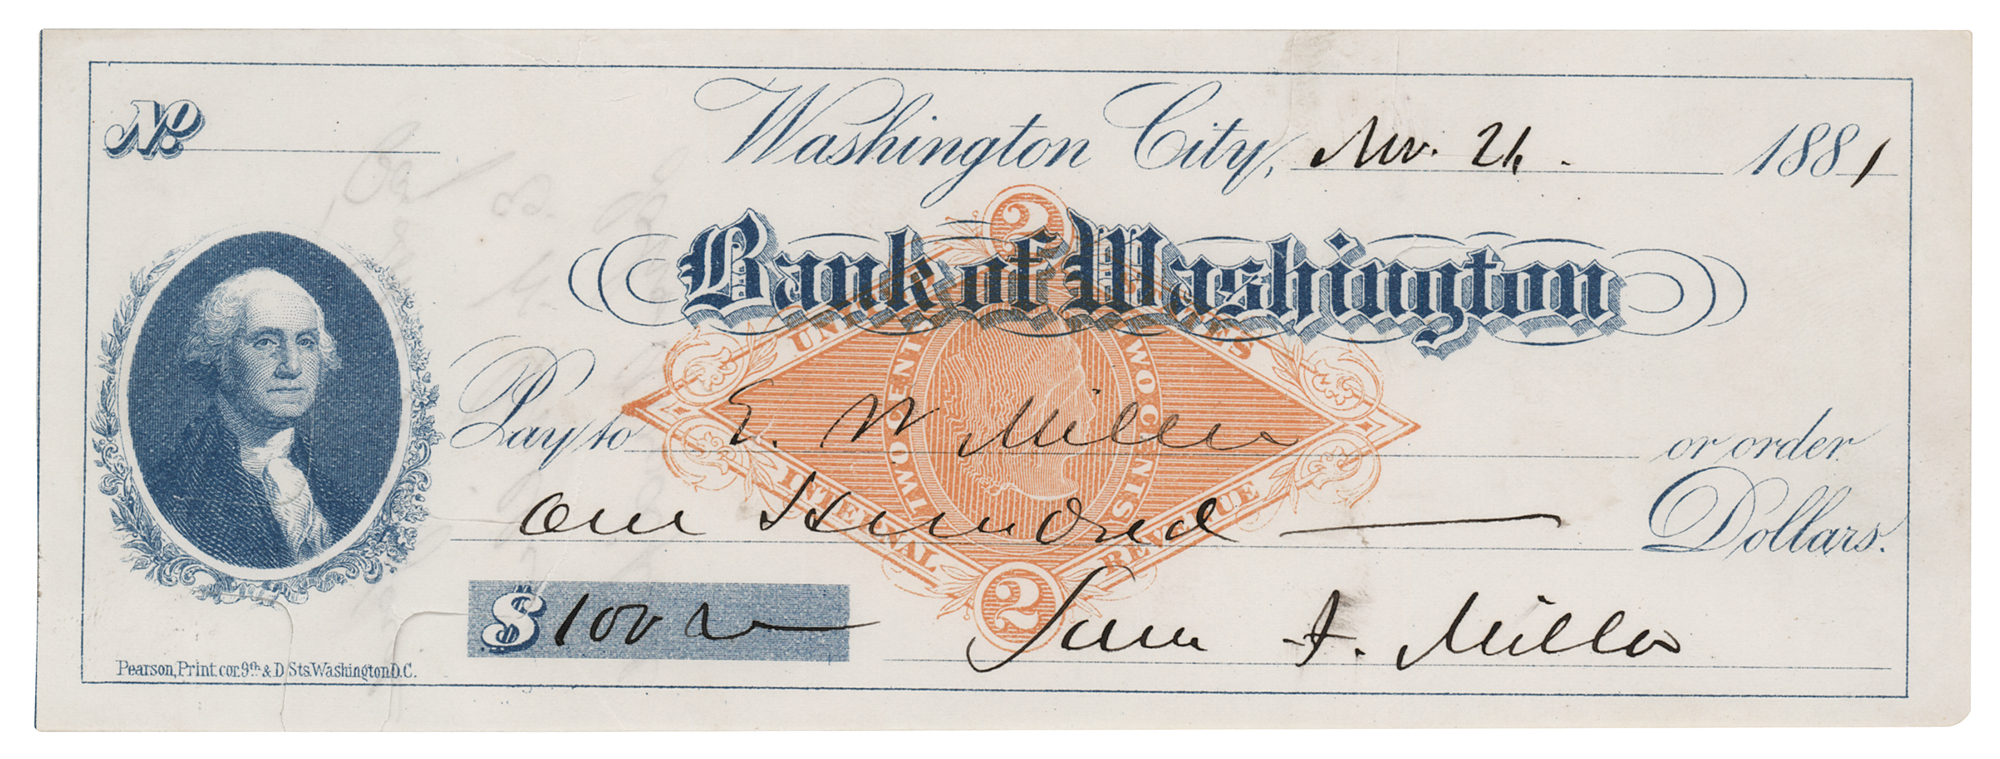 No.
Washington City, Nov. 21. 1881
Bank of Washington
2
UNITED STATES
TWO CENTS TWO CENTS
Pay to E. W Miller or order
INTERNAL REVENUE
One Hundred Dollars.
2
$ 100
Sam F. Miller
Pearson, Print. cor. 9th & D Sts. Washington D.C.